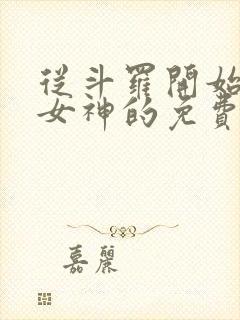 從斗羅開始
女神的免費
嘉麗